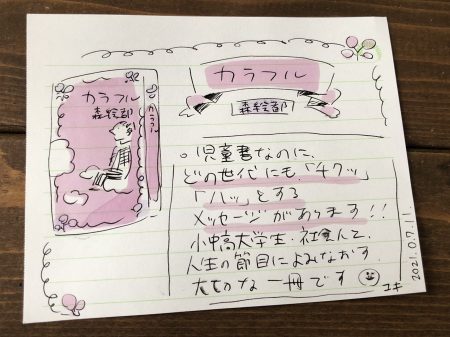 カラフル
森絵都
カラフル
カラフル
森絵都
。児童書なのに、
どの世代にも、「チクッ」
「ハッ」とする
メッセージがあります!!
小中高大学生・社会人と、
人生の節目によみなおす
大切な一冊です
ユキ
2021.07.11.